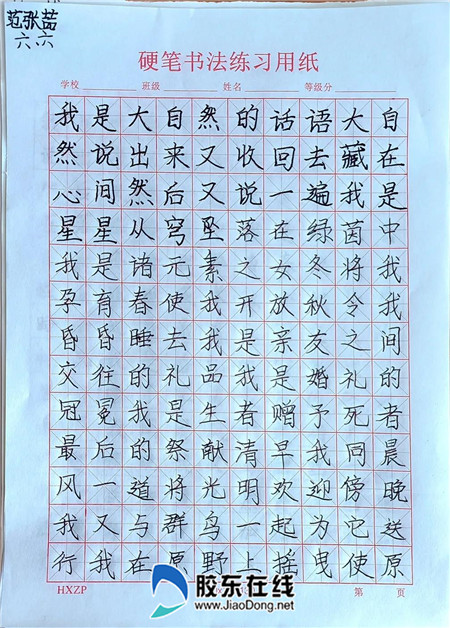 范张
六.六
硬笔书法练习用纸
学校 班级 姓名 等级分
我是大自然的话语大自
然说出来又收回去藏在
心间然后又说一遍我是
星星从穹坠落在绿茵中
我是诸元素之女冬将我
孕育春使我开放秋令我
昏昏睡去我是亲友之间
交往的礼品我是婚礼的
冠冕我是生者赠予死者
最后的祭献清早我同晨
风一道将光明欢迎傍晚
我又与群鸟一起为它送
行我在原野上摇曳使原
HXZP 第 页
胶东在线
www.JiaoDong.net